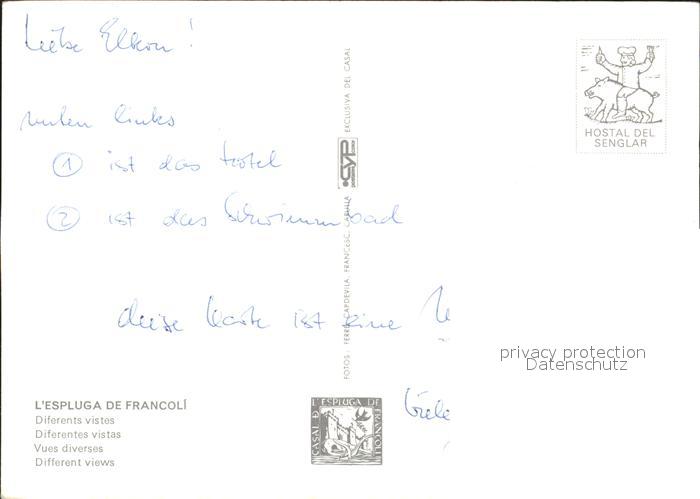 Liebe Eltern!
unten links
① ist das Hotel
② ist das Schwimmbad
diese Karte ist eine
Viele
HOSTAL DEL
SENGLAR
EXCLUSIVA DEL CASAL
CYP
FOTOS: FERRÉ, CAPDEVILA, FRANCESC, CABULLA
privacy protection
Datenschutz
L'ESPLUGA DE FRANCOLÍ
Diferents vistes
Diferentes vistas
Vues diverses
Different views
CASAL DE L'ESPLUGA DE FRANCOLI